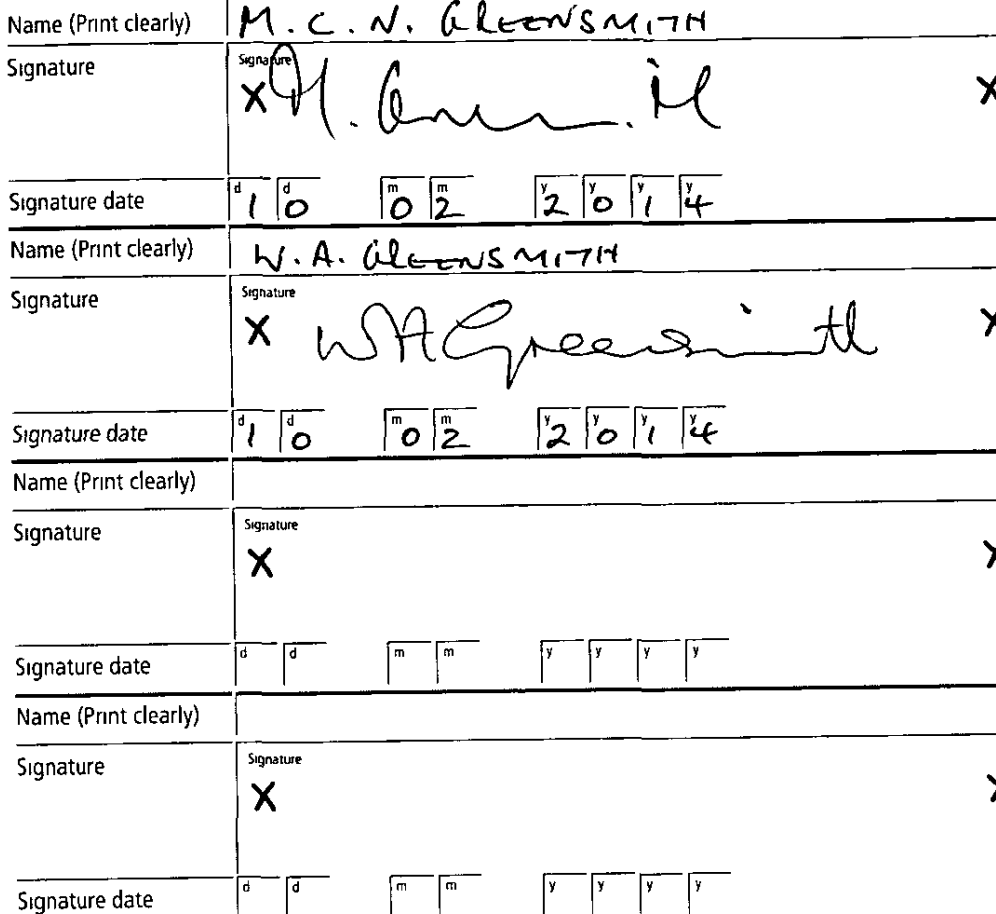 Name (Print clearly) M. C. N. GREENSMITH
Signature Signature
X X
Signature date d 1 d 0 m 0 m 2 y 2 y 0 y 1 y 4
Name (Print clearly) W. A. GREENSMITH
Signature Signature
X WA Greensmith X
Signature date d 1 d 0 m 0 m 2 y 2 y 0 y 1 y 4
Name (Print clearly)
Signature Signature
X X
Signature date d d m m y y y y
Name (Print clearly)
Signature Signature
X X
Signature date d d m m y y y y